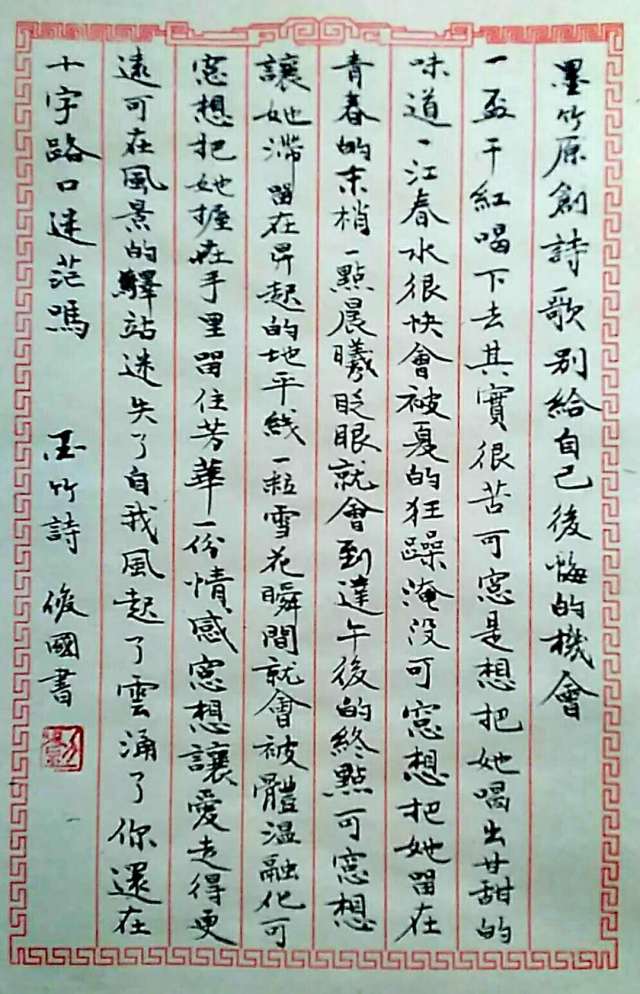 墨竹原創詩歌別給自己後悔的機會
一盃干紅喝下去其實很苦可窓是想把她喝出甘甜的
味道一江春水很快會被夏的狂躁淹没可窓想把她留在
青春的末梢一點晨曦眨眼就會到達午後的終點可窓想
讓她滯留在昇起的地平綫一粒雪花瞬間就會被體温融化可
窓想把她握在手里留住芳華一份情感窓想讓愛走得更
遠可在風景的驛站迷失了自我風起了雲涌了你還在
十字路口迷茫嗎 墨竹詩 俊國書